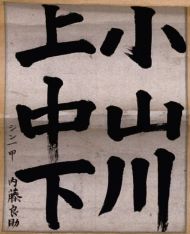 小山川
上中下
シン一甲 内藤良助